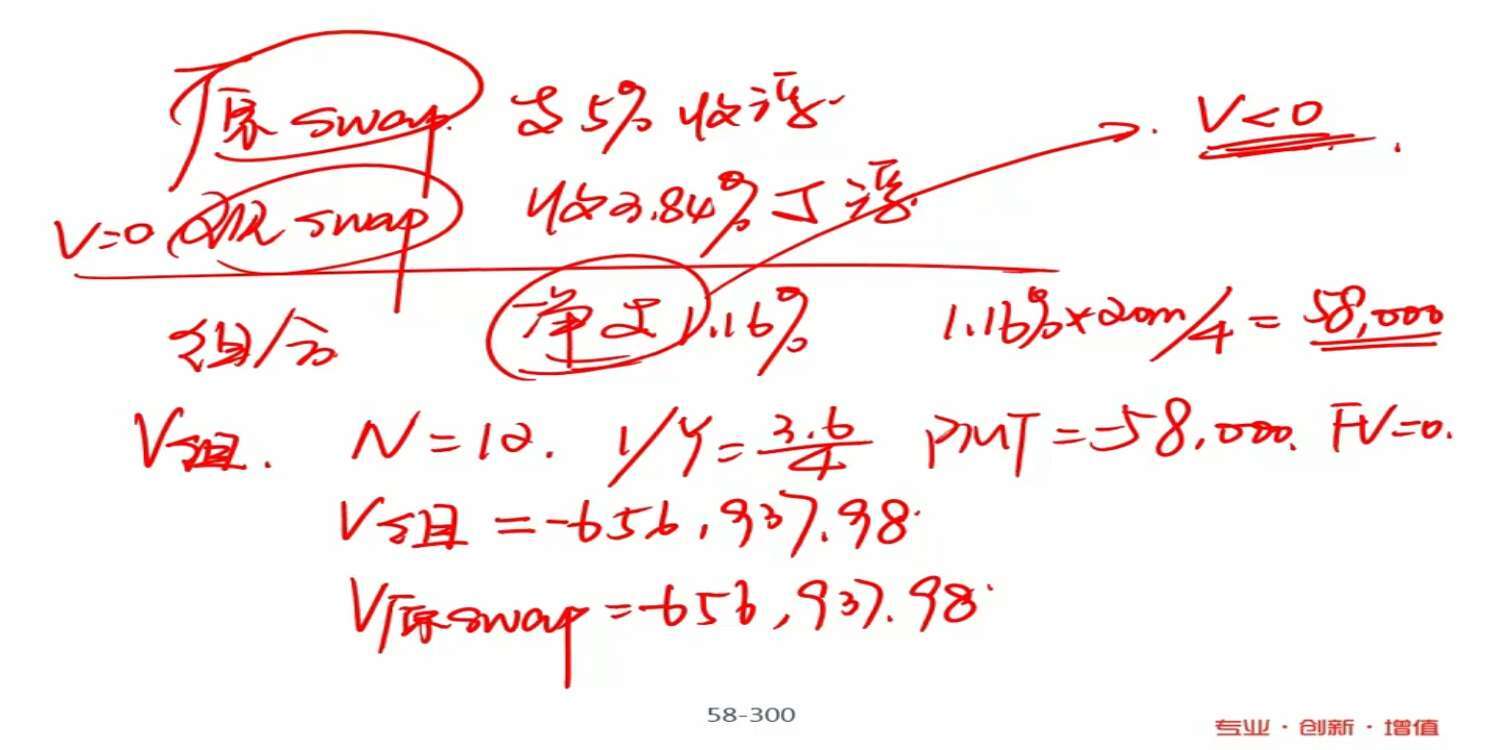 原swap 支5% 收浮. V<0.
V=0 现swap 收3.84% 支浮
组合 净支1.16% 1.16%×20m/4=58,000
V组. N=12. I/Y=3.6/4 PMT=-58,000. FV=0.
V组=-656,937.98
V原swap=-656,937.98
58-300
专业·创新·增值